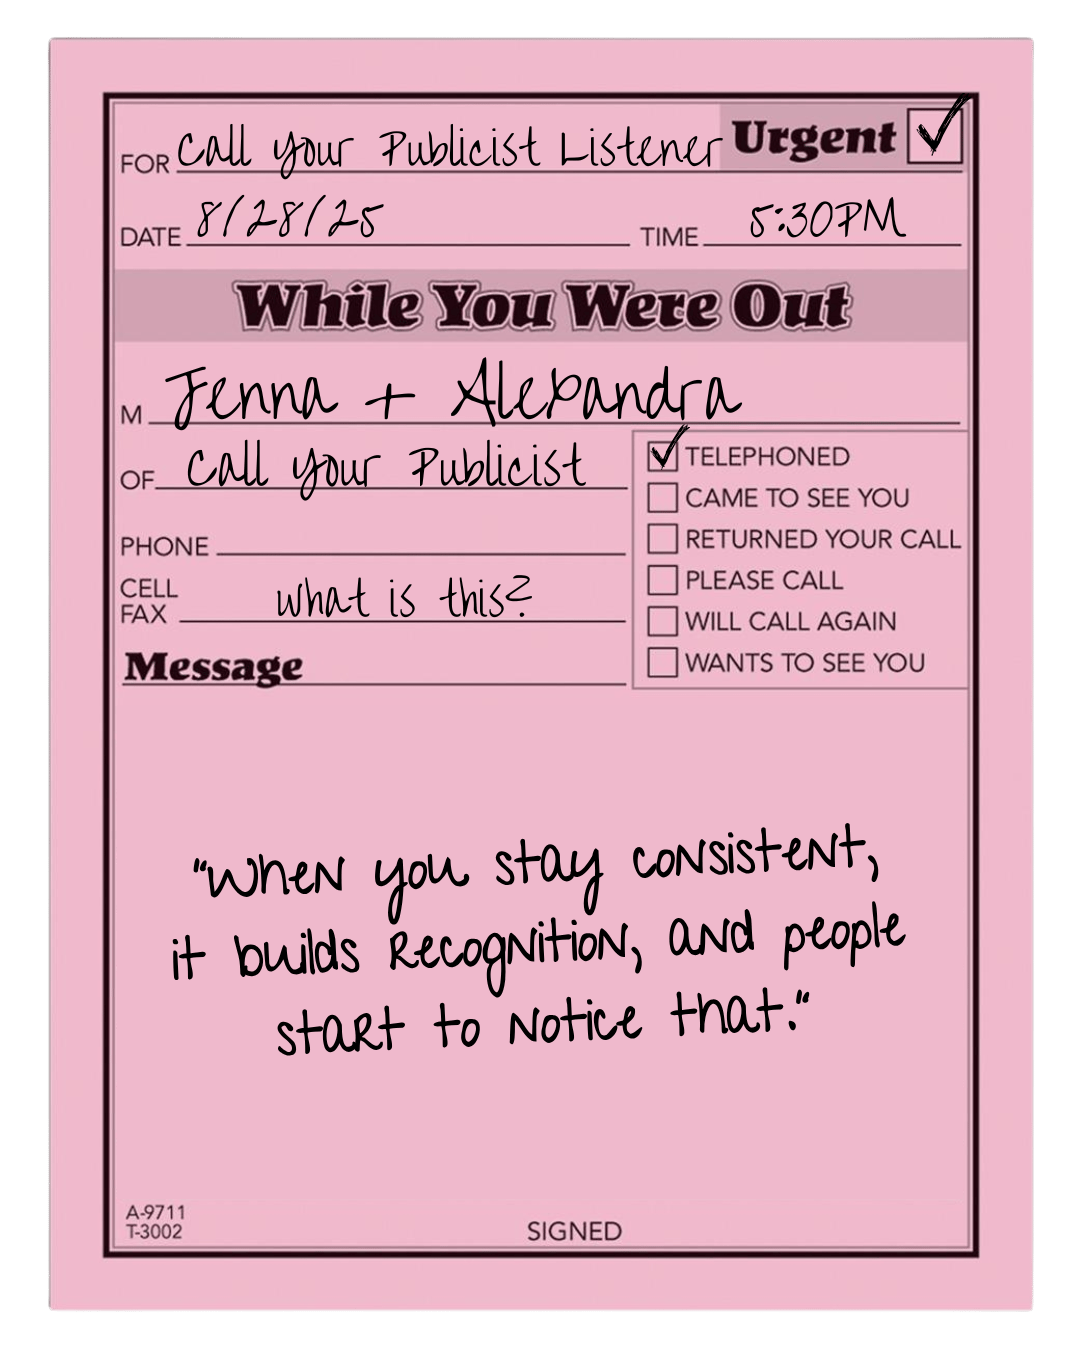 FOR Call your Publicist Listener Urgent
DATE 8/28/25 TIME 5:30PM
While You Were Out
M Jenna + Alexandra
OF Call your Publicist
PHONE
CELL
FAX what is this?
TELEPHONED
CAME TO SEE YOU
RETURNED YOUR CALL
PLEASE CALL
WILL CALL AGAIN
WANTS TO SEE YOU
Message
"When you stay consistent,
it builds recognition, and people
start to notice that."
A-9711
T-3002
SIGNED